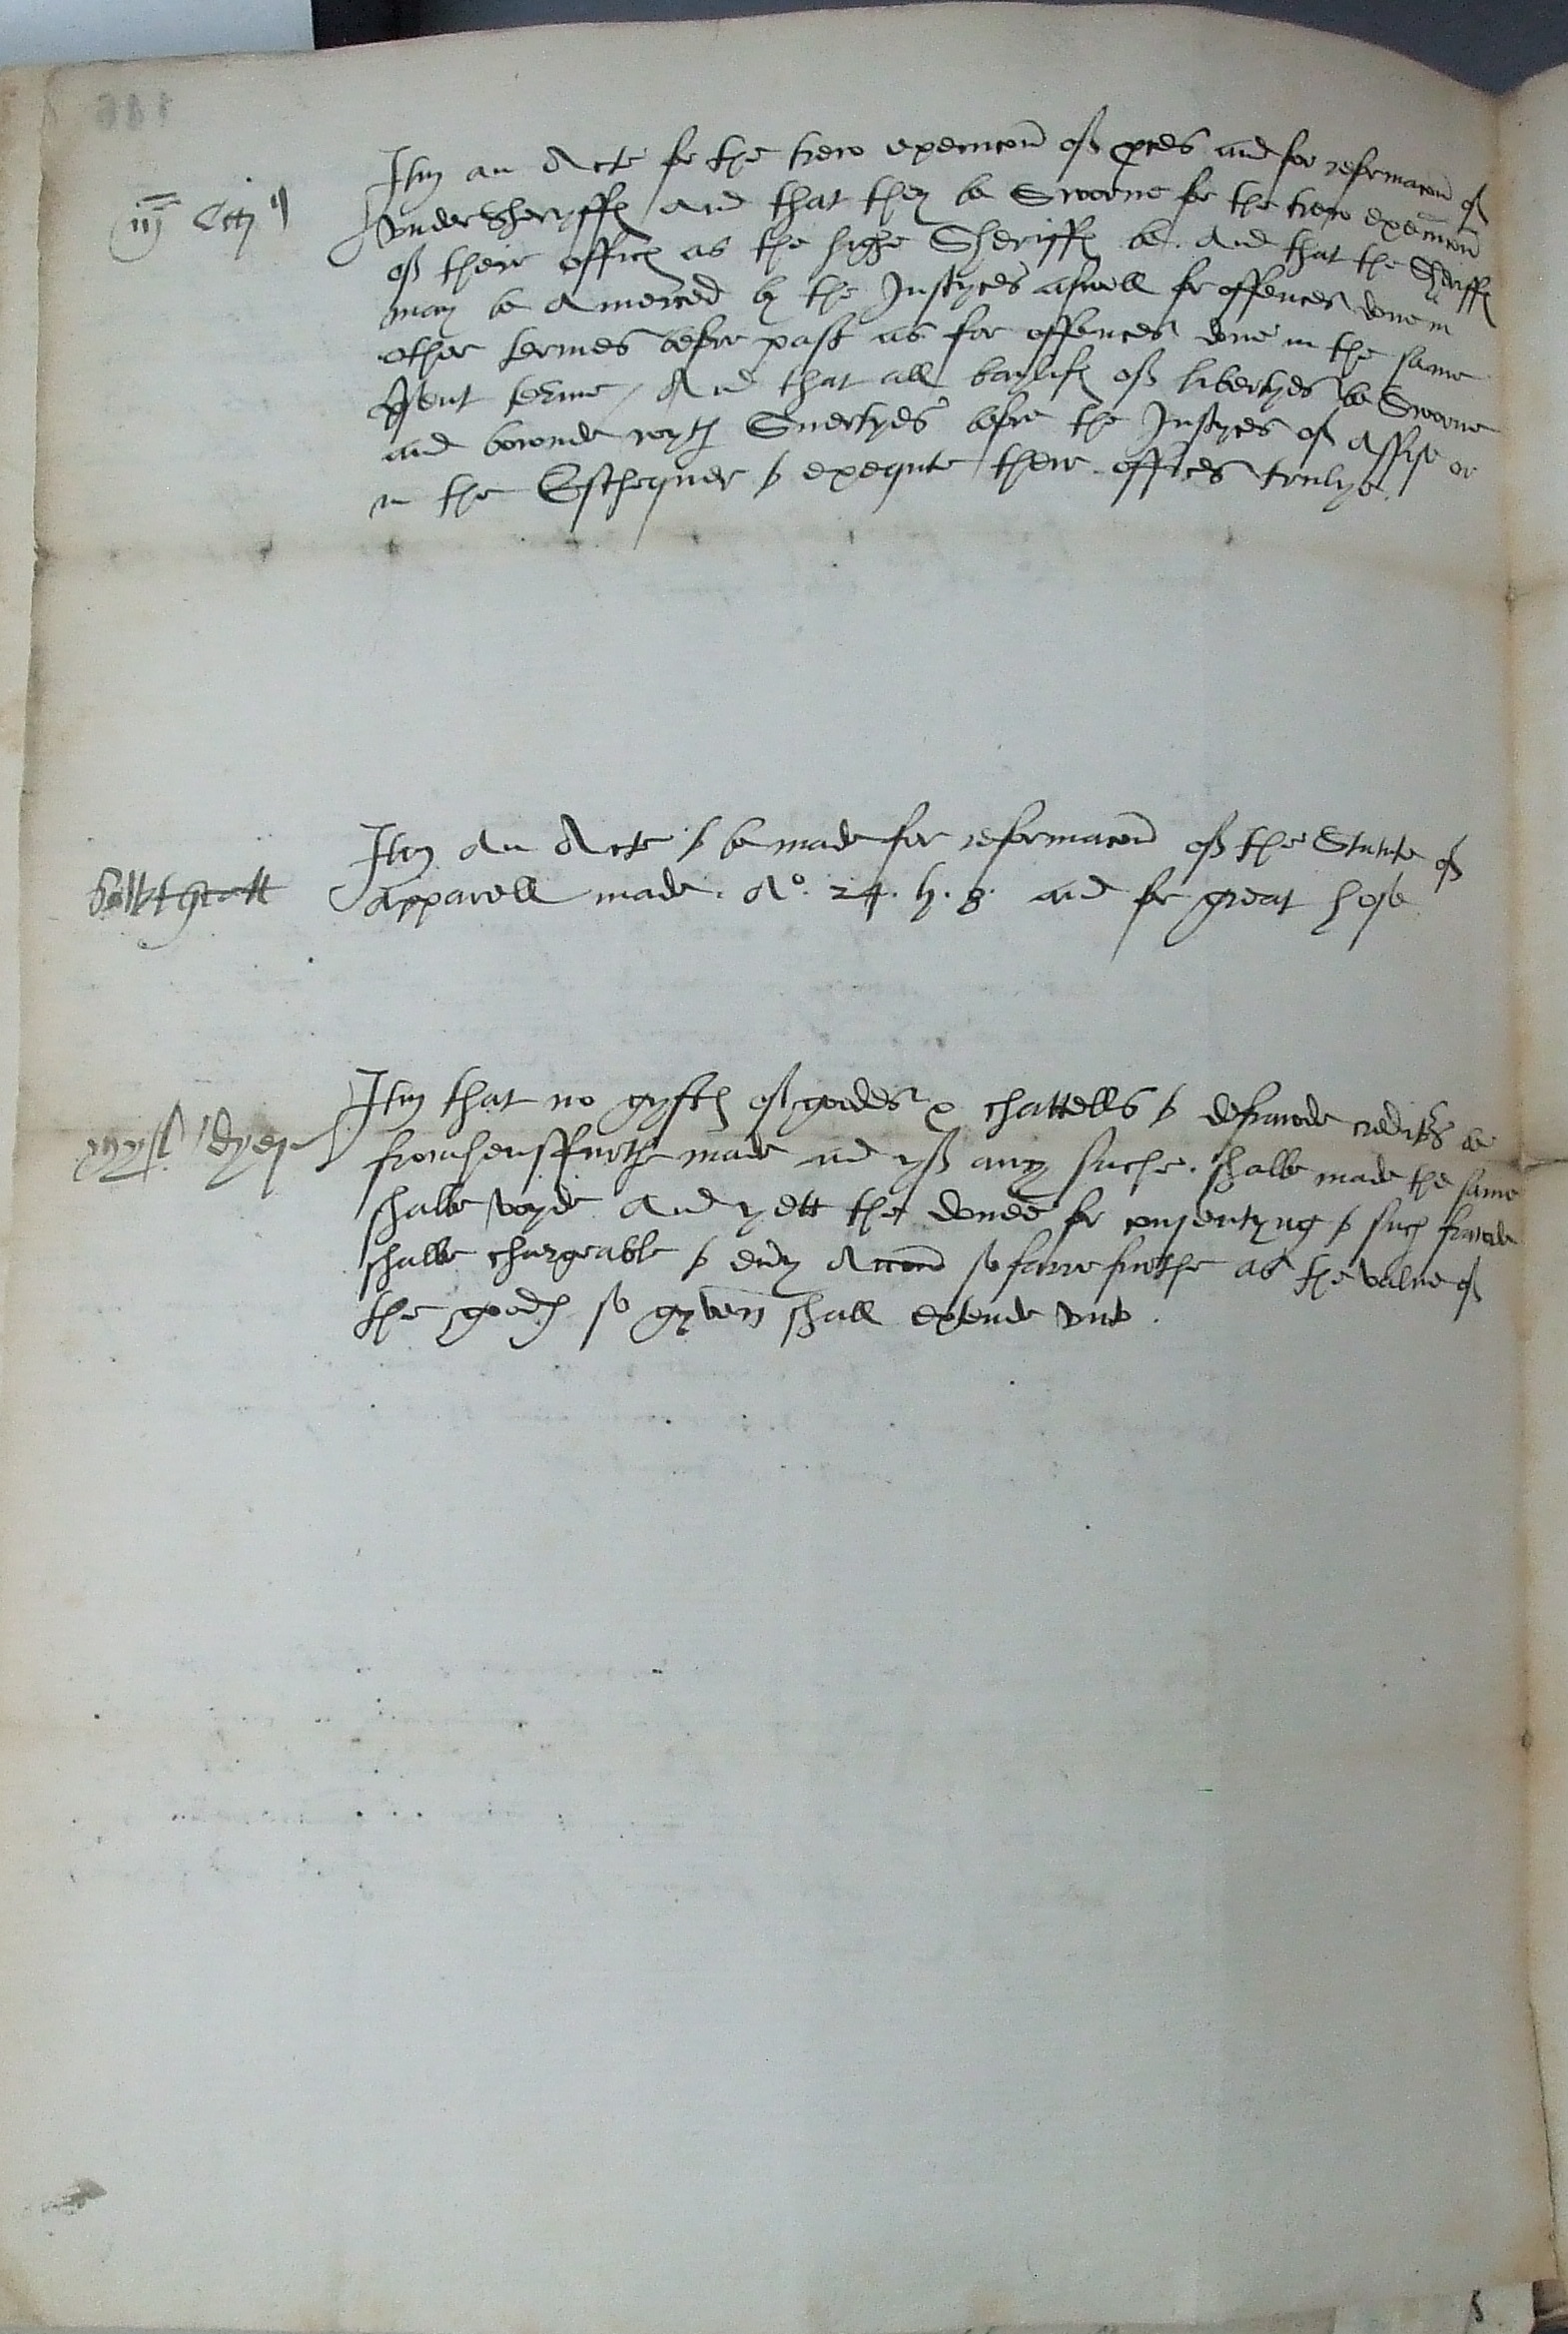 Itm an Acte for the trew execucon off pces and for reformacon of
under Sheryffes and that they be Sworne for the trew execucon
off their offices as the highe Sheriffes be. And that the Sheriffes
may be Amerced by the Justyces aswell for offences done in
other termes before past as for offences done in the same
psent terme / And that all baylifes off libertyes be Sworne
and bownde wyth Suertyes before the Justyces of Assise or
in the Eschequer to exequte there offices trulye.
Itm An Acte to be made for reformacon off the Statute of
Apparell made. Ao. 24. h. 8. and for great hose
Itm that no gyftes off goodes & chattells to defrawde creditors be
fromhensffurthe made and yff any suche. shalbe made the same
shalbe voyde And yett the donee for consentyng to such frawde
shalbe chargeable to euy Accon so farre furthe as the value of
the goodes so gyven shall extende unto.